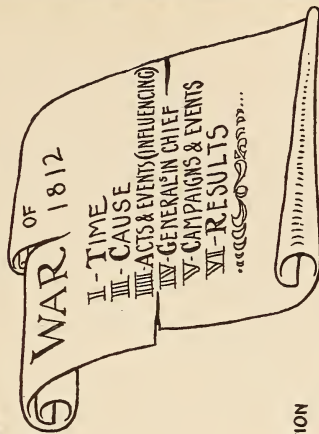 WAR OF 1812
I - TIME
II - CAUSE
III - ACTS & EVENTS (INFLUENCING)
IV - GENERALS IN CHIEF
V - CAMPAIGNS & EVENTS
VI - RESULTS
ION